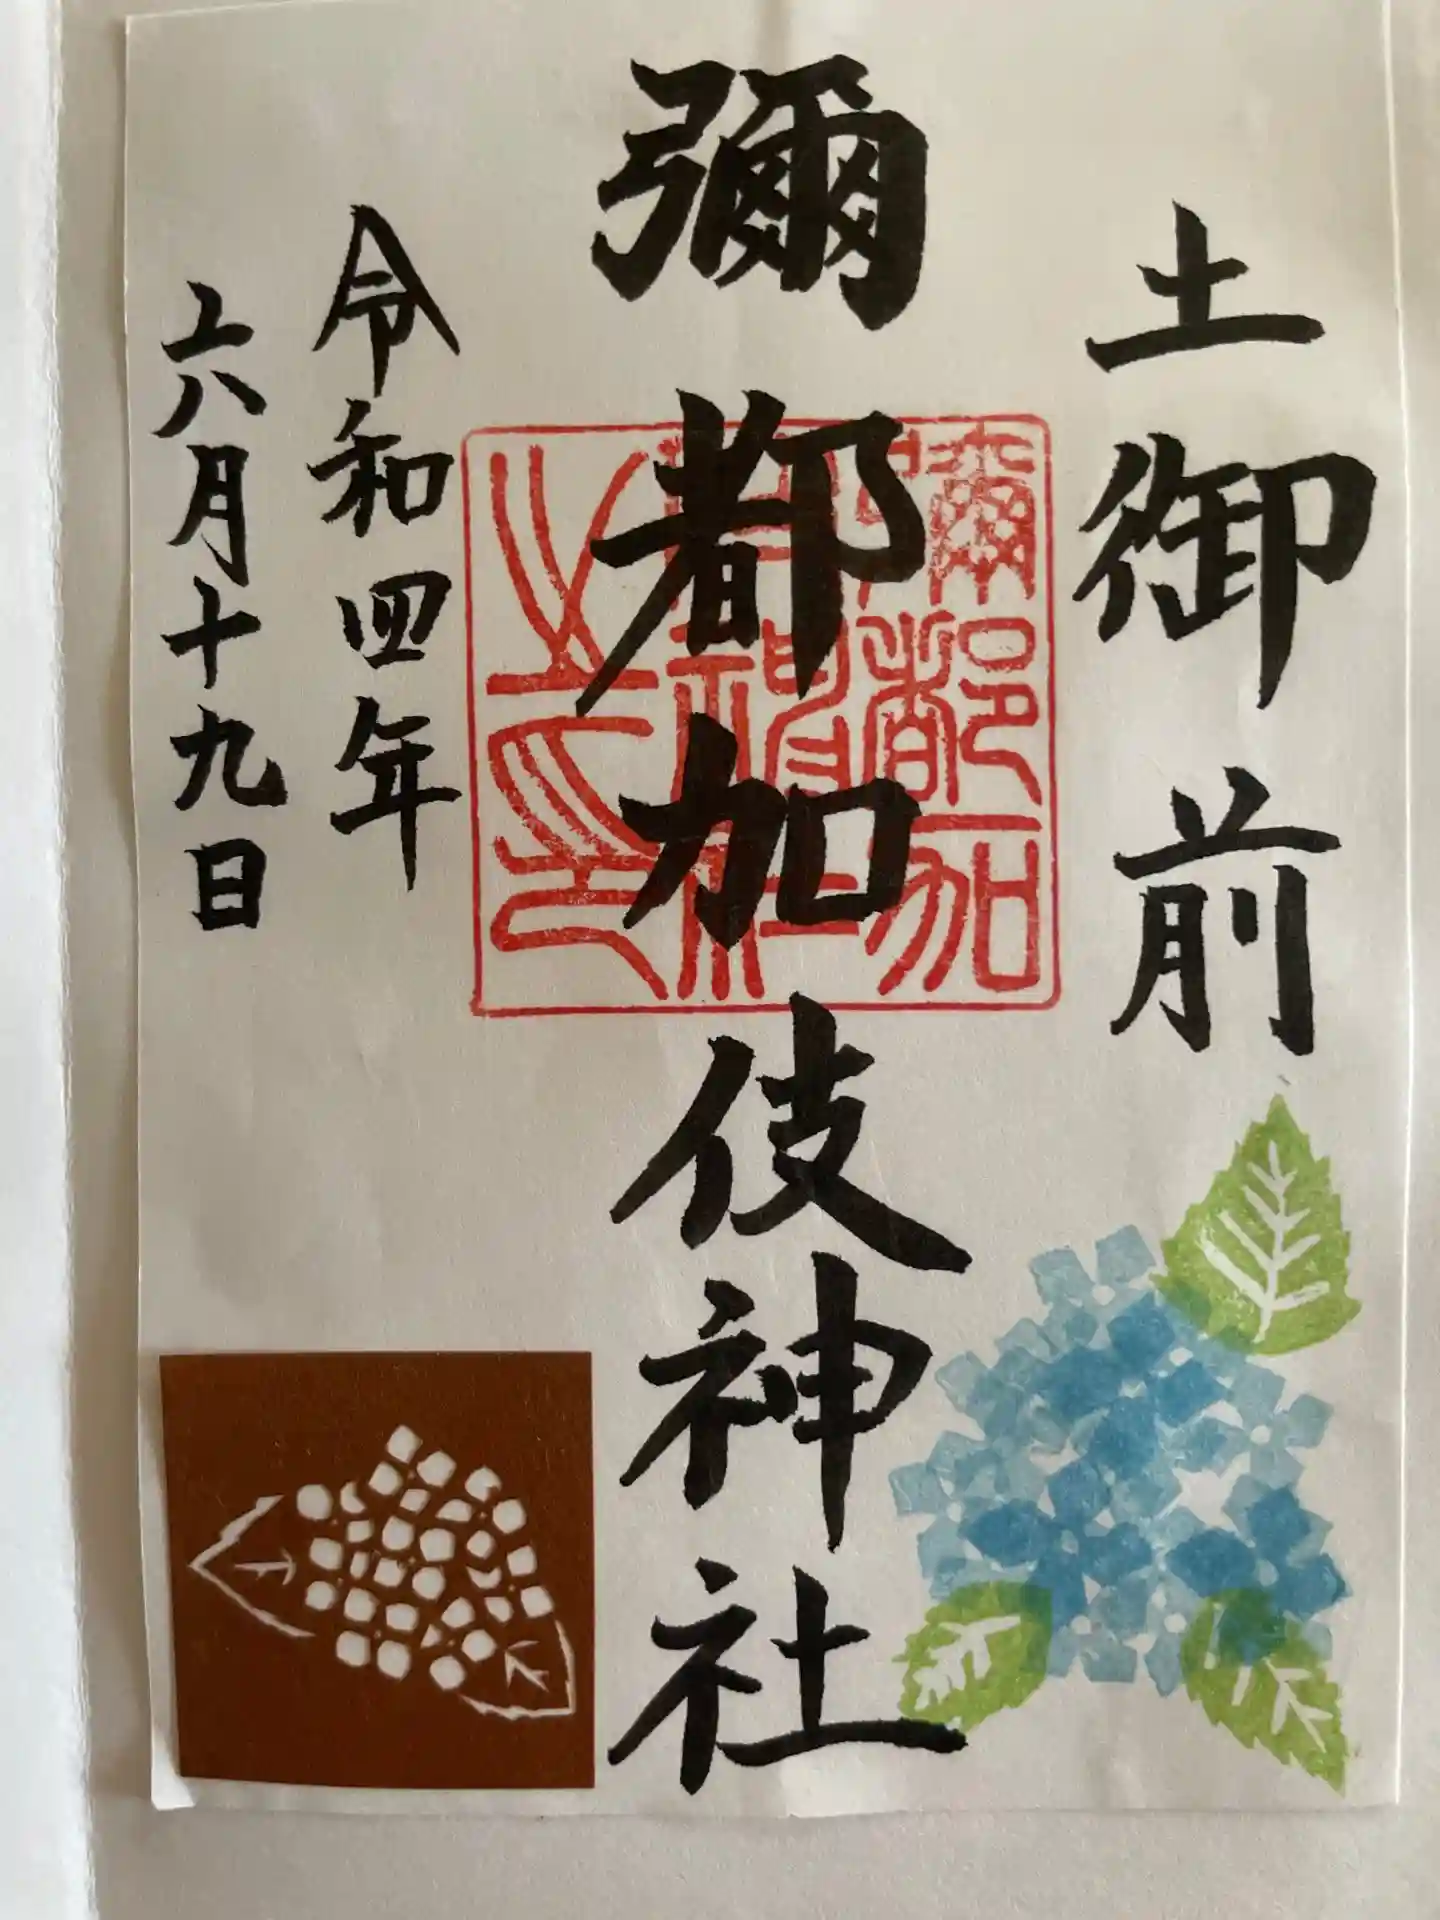 土御前
彌都加伎神社
彌都加伎神社之印
令和四年
六月十九日